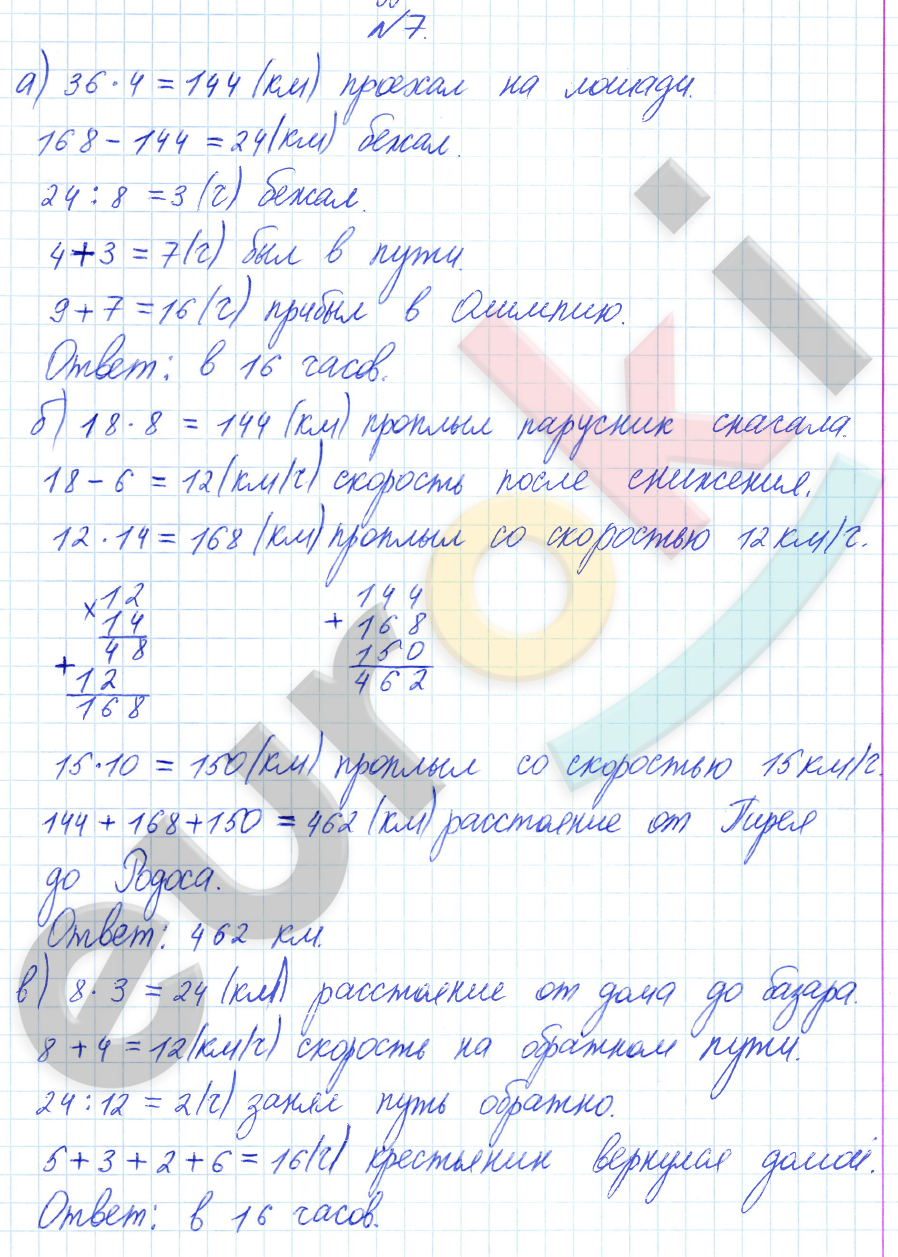 №7.
а) 36 · 4 = 144 (км) проехал на лошади.
168 - 144 = 24 (км) бежал.
24 : 8 = 3 (ч) бежал.
4 + 3 = 7 (ч) был в пути.
9 + 7 = 16 (ч) прибыл в Олимпию.
Ответ: в 16 часов.
б) 18 · 8 = 144 (км) проплыл парусник сначала.
18 - 6 = 12 (км/ч) скорость после снижения.
12 · 14 = 168 (км) проплыл со скоростью 12 км/ч.
× 12 144
14 + 168
48 150
+ 12 462
168
15 · 10 = 150 (км) проплыл со скоростью 15 км/ч.
144 + 168 + 150 = 462 (км) расстояние от Пирея
до Родоса.
Ответ: 462 км.
в) 8 · 3 = 24 (км) расстояние от дома до базара.
8 + 4 = 12 (км/ч) скорость на обратном пути.
24 : 12 = 2 (ч) занял путь обратно.
5 + 3 + 2 + 6 = 16 (ч) крестьянин вернулся домой.
Ответ: в 16 часов.
euroki